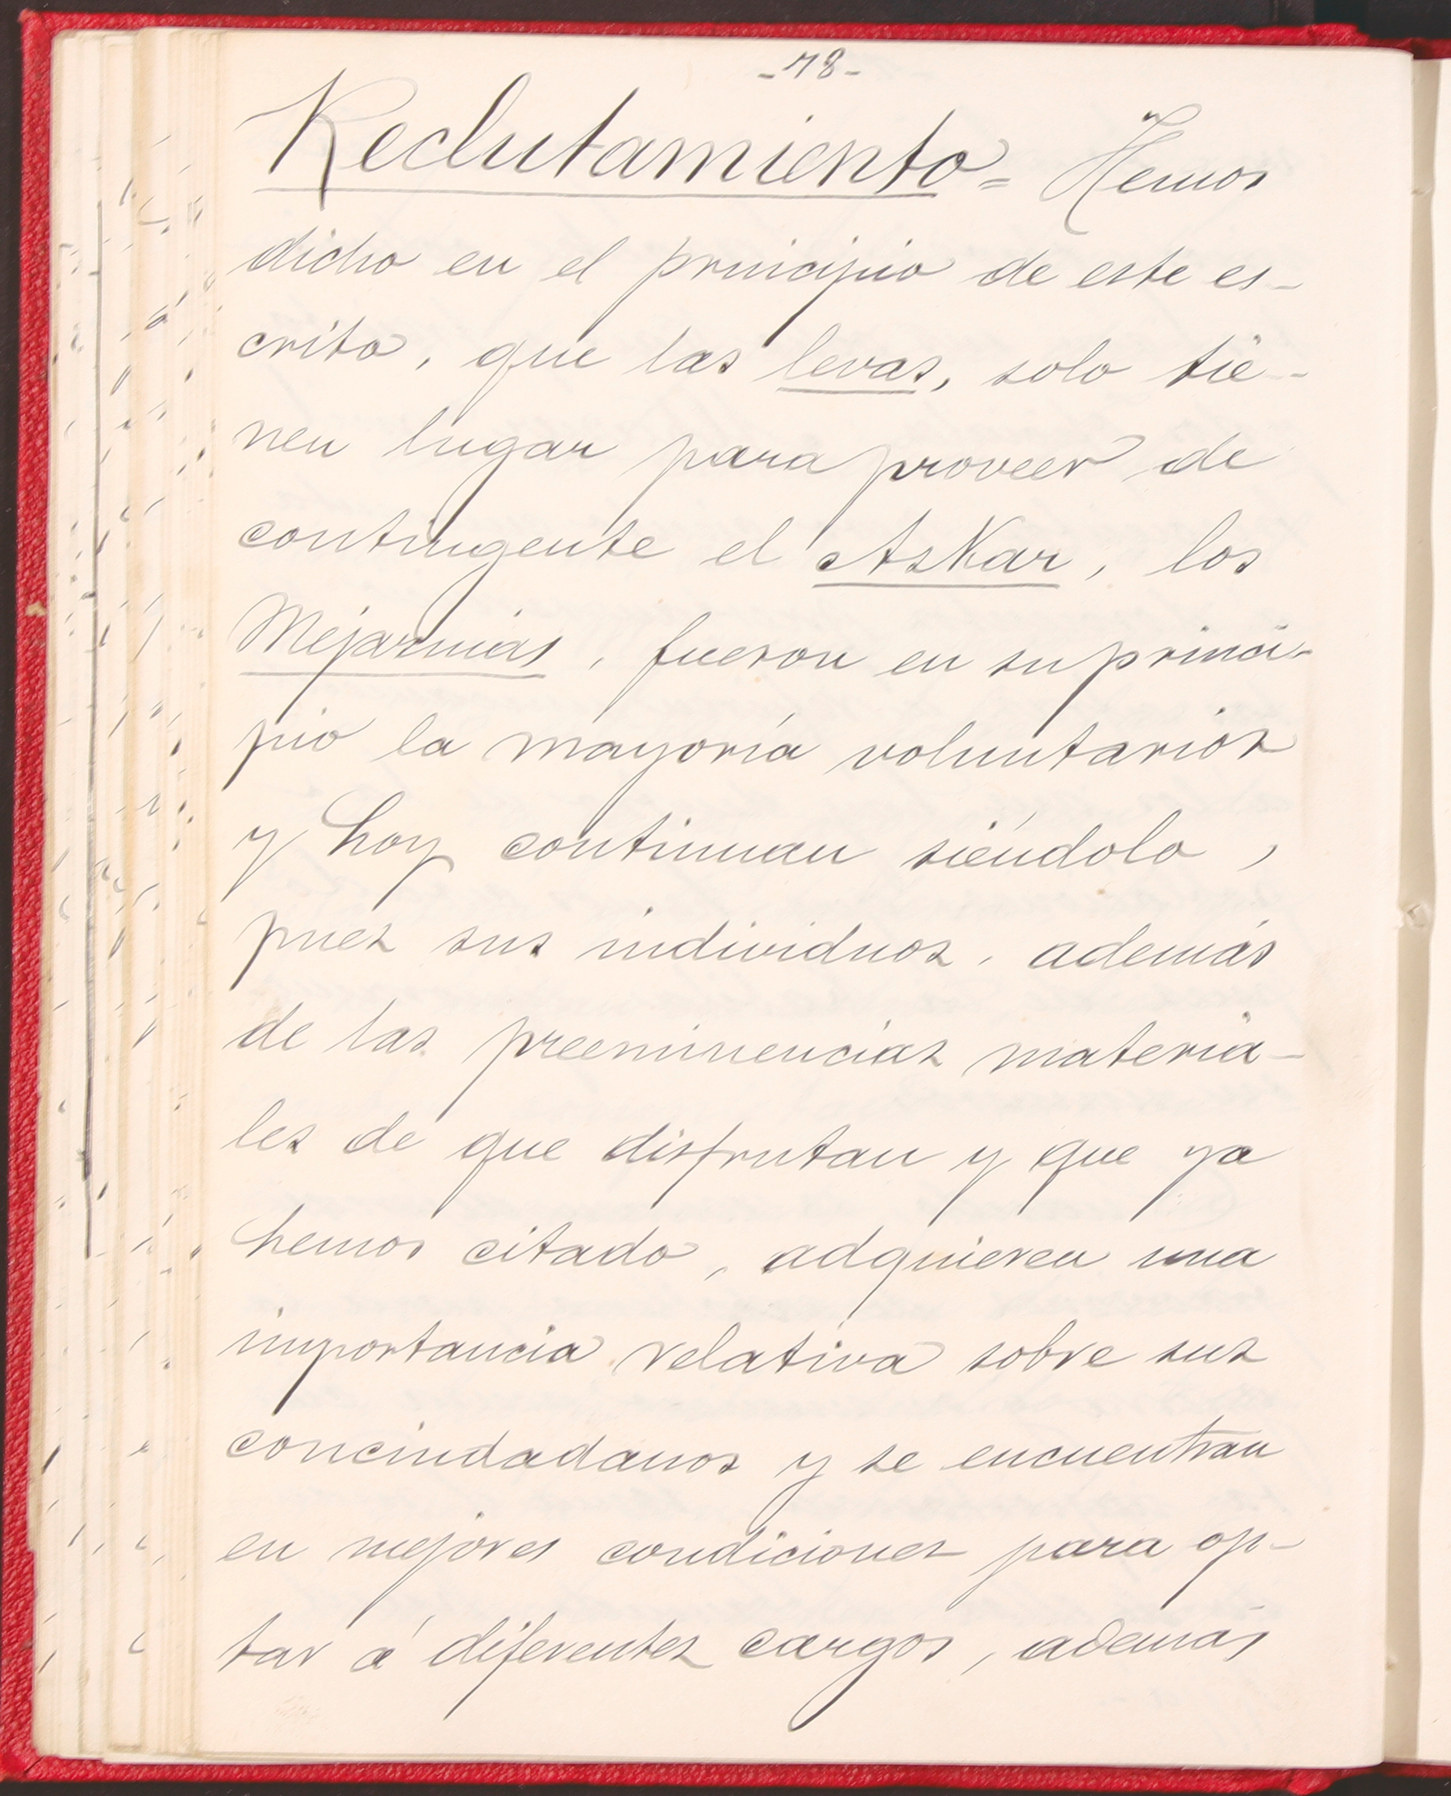 -78-
Reclutamiento = Hemos
dicho en el principio de este es-
crito, que las levas, solo tie-
nen lugar para proveer de
contingente el Askar, los
Mejarnias, fueron en su princi-
pio la mayoría voluntarios
y hoy continuan siéndolo,
pues sus individuos, además
de las preeminencias materia-
les de que disfrutan y que ya
hemos citado, adquieren una
importancia relativa sobre sus
conciudadanos y se encuentran
en mejores condiciones para op-
tar á diferentes cargos, además